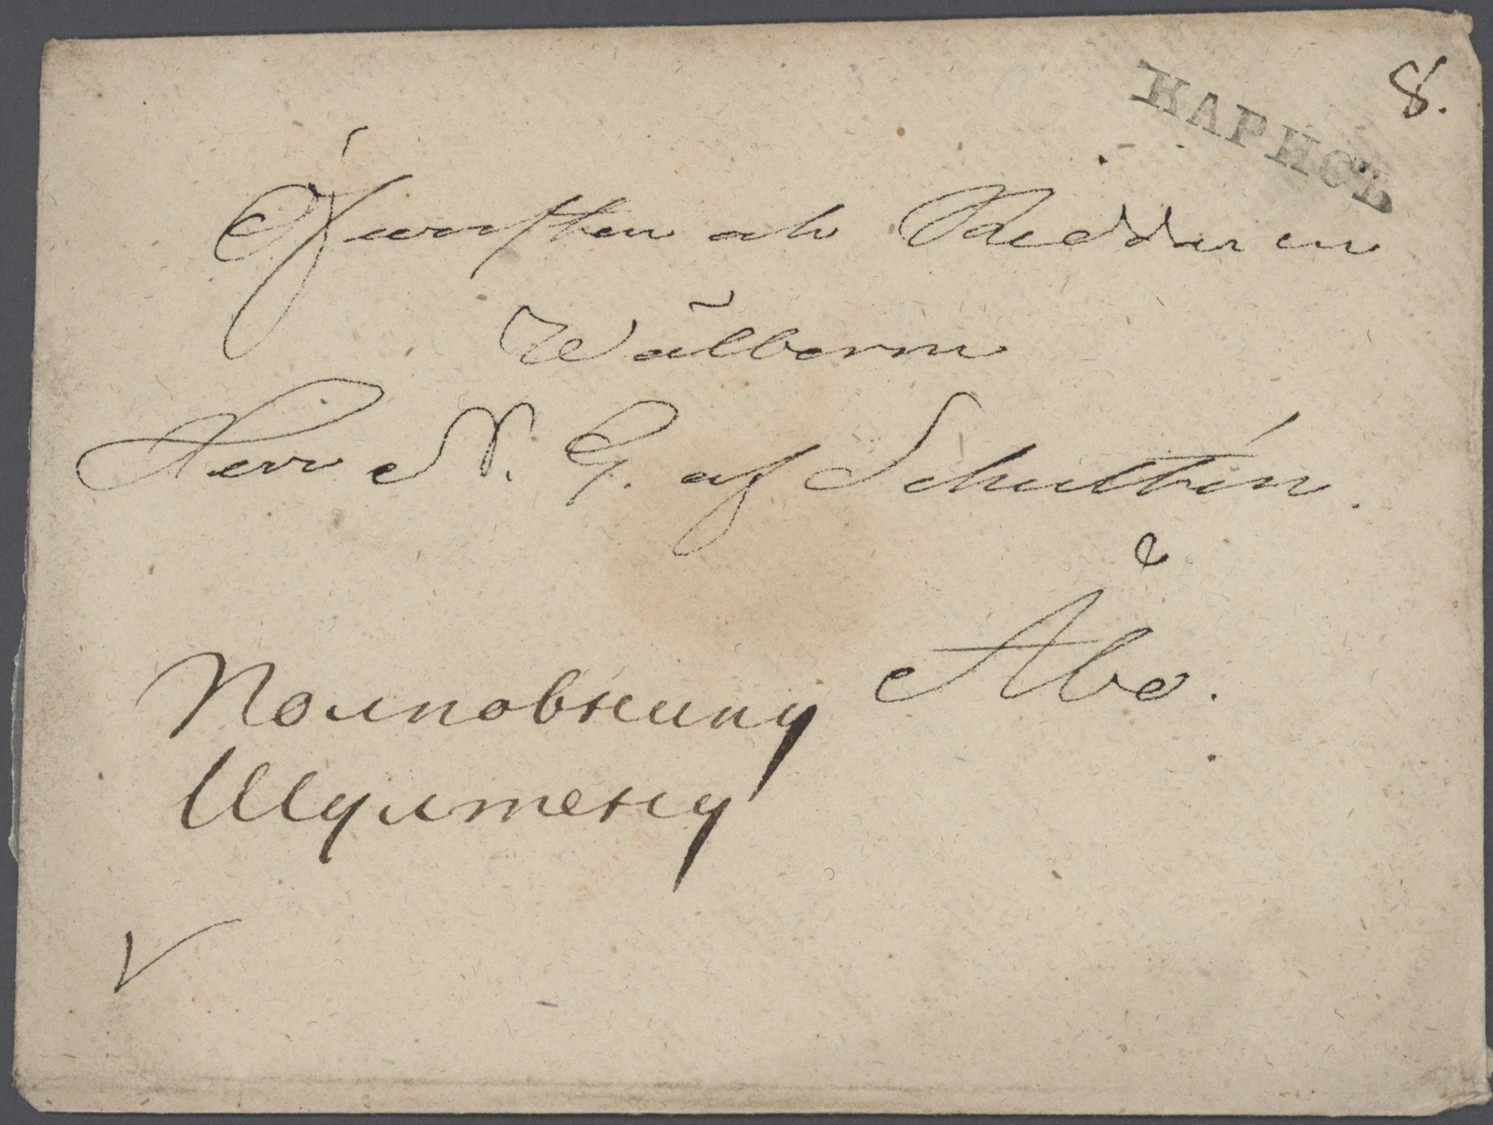 КАРИСЪ
8.
Öfwersten och Riddaren
Wälborne
Herr N. G. af Schultén.
Åbo.
Полковнику
Шултену